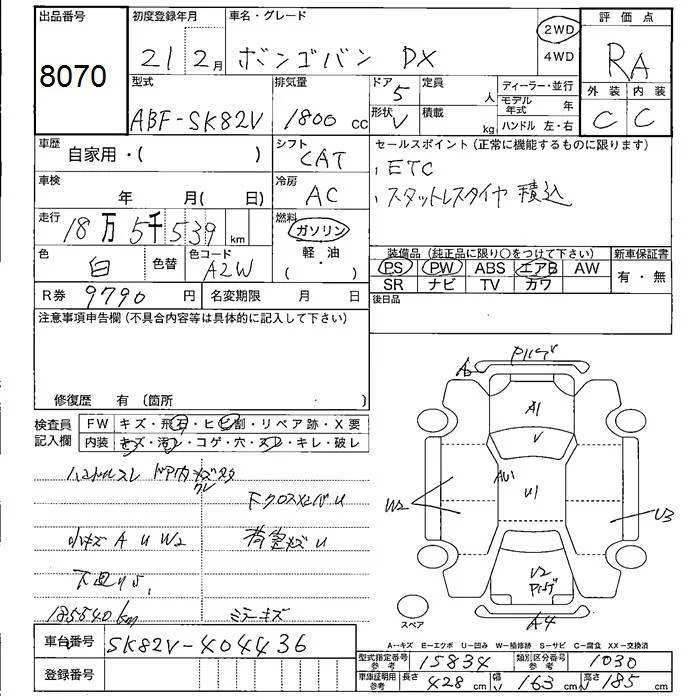 出品番号 初度登録年月 車名・グレード 2WD 評価点
8070 21 2月 ボンゴバン DX 4WD RA
型式 排気量 ドア 5 定員 人 ディーラー・並行 外装 内装
ABF-SK82V 1800 cc 形状 V 積載 kg モデル年式 年 C C
ハンドル 左・右
車歴 自家用・( ) シフト CAT セールスポイント(正常に機能するものに限ります)
車検 年 月( 日) 冷房 AC ・ETC
・スタットレスタイヤ 積込
走行 18万 5千 539 km 燃料 ガソリン 軽・油 ( )
色 白 色替 色コード A2W
装備品(純正品に限り○をつけて下さい) 新車保証書
PS PW ABS エアB AW 有・無
SR ナビ TV カワ
R券 9790 円 名変期限 月 日 後日品
注意事項申告欄(不具合内容等は具体的に記入して下さい)
修復歴 有 (箇所 )
検査員記入欄 FW キズ・飛石・ヒビ割・リペア跡・X要
内装 キズ・汚レ・コゲ・穴・スレ・キレ・破レ
ハンドルスレ ドア内キズ
U
小キズ A U W2 荷室キズ U
185540km ミラーキズ
A1
V
AU1
U1
W2
U3
U2
A4
スペア
車台番号 SK82V-404436
登録番号
A--キズ E--エクボ U--凹み W--補修跡 S--サビ C--腐食 XX--交換済
型式指定番号 参考 15834 類別区分番号 参考 1030
車庫証明用 参考 長さ 428 cm 幅 163 cm 高さ 185 cm